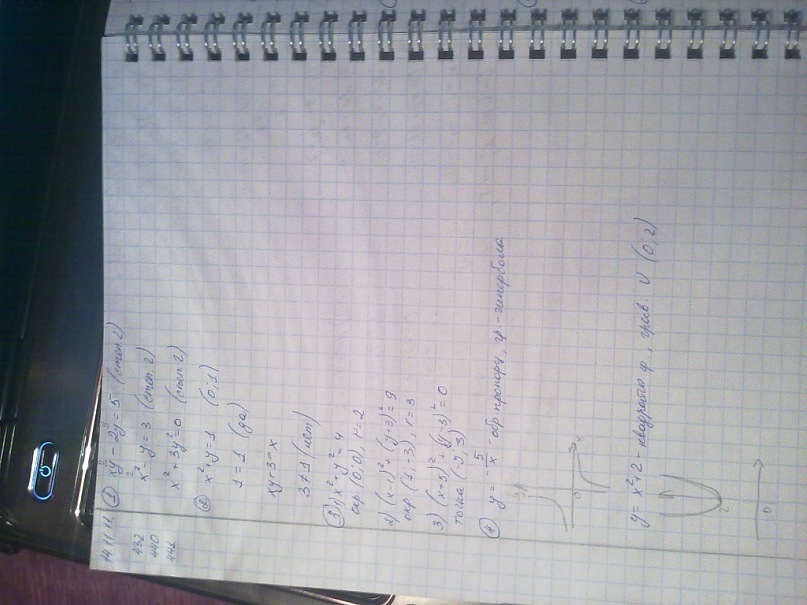 14.11.11.
432
440
441
① xy – 2y = 5 (степ. 2)
x² – y = 3 (степ. 2)
x² + 3y² = 0 (степ. 2)
② x² + y = 1 (0; 1)
1 = 1 (да)
xy + 3 = x
3 ≠ 1 (нет)
③ 1) x² + y² = 4
окр (0; 0), r = 2
2) (x – 1)² + (y + 3)² = 9
окр (1; –3), r = 3
3) (x + 5)² + (y – 3)² = 0
точка (–5; 3)
④ y = – 5/x – обр. пропорц, гр – гипербола
y
0
x
y = x² + 2 – квадратн. ф, граф. ∪ (0; 2)
2
0